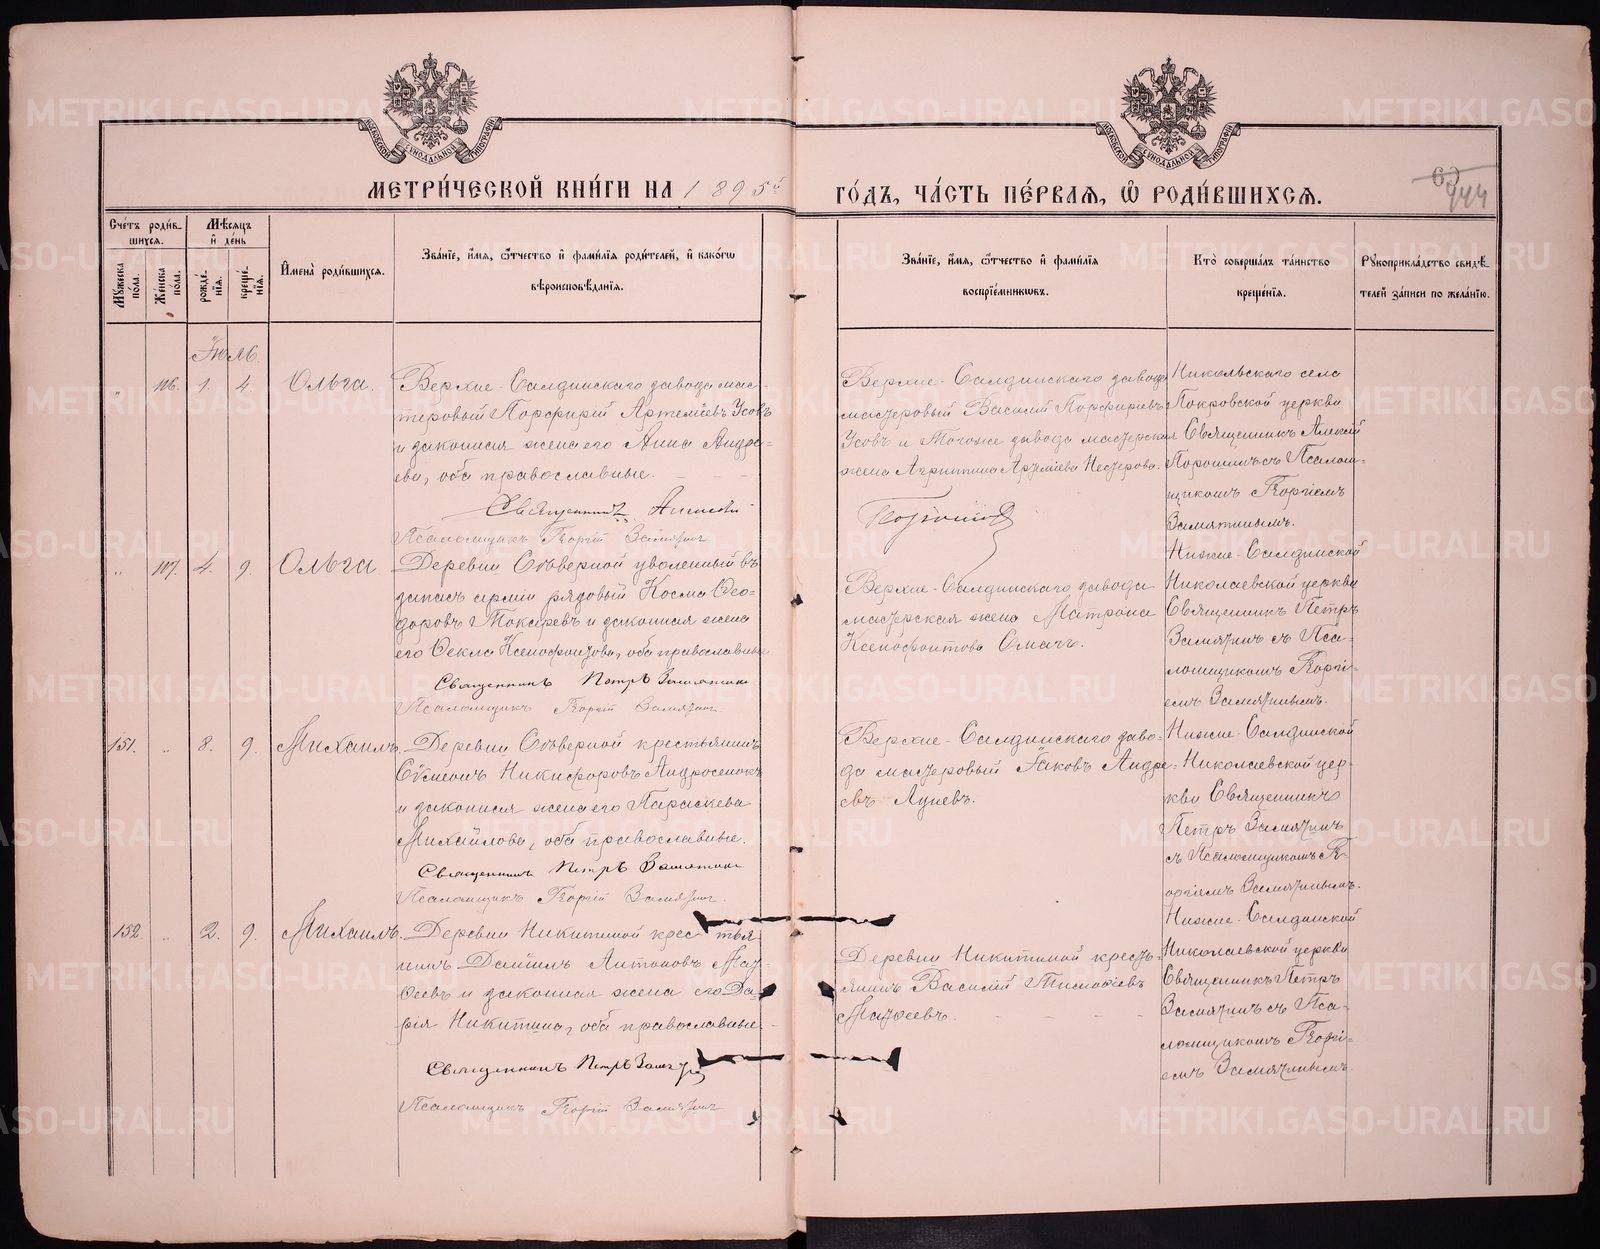 МЕТРИ́ЧЕСКОЙ КНИ́ГИ НА 1895й
ГО́ДЪ, ЧА́СТЬ ПЕ́РВАЯ, Ѽ РОДИ́ВШИХСЯ.
63
444
Сче́тъ роди́в-
шихся.
Мѣсяцъ
и̂ де́нь
Мꙋжеска по́ла.
Же́нска по́ла.
рожде́нїя.
креще́нїя.
И҆мена̀ роди́вшихся.
Зва́нїе, и҆́мя, ѻ҆́тчество и҆ фами́лїя роди́телей, и҆ како́гѡ
вѣроисповѣ́данїя.
Зва́нїе, и҆́мя, ѻ҆́тчество и҆ фами́лїя
воспрїе́мникѡвъ.
Кто̀ соверша́лъ та́инство
креще́нїя.
Рꙋкоприкла́дство свидѣ́-
телей за́писи по жела́нїю.
Іюль.
" 106. 1. 4. Ольга.
Верхне-Салдинскаго завода мас-
теровый Порфирій Артеміевъ Усовъ
и законная жена его Анна Андре-
ева, оба православные.
Священникъ Алексѣй
Порошинъ
Псаломщикъ Георгій Замятнин
Верхне-Салдинскаго завода
мастеровый Василій Порфирьевъ
Усовъ и тогоже завода мастерская
жена Агриппина Артеміева Нестерова.
Никольскаго села
Покровской церкви
Священникъ Алексій
Порошинъ съ Псалом-
щикомъ Георгіемъ
Замятнинымъ.
" 107. 4. 9. Ольга
Деревни Сѣверной уволенный въ
запасъ арміи рядовый Косма Ѳео-
доровъ Токаревъ и законная жена
его Ѳекла Ксенофонтова, оба православные
Священникъ Петръ Замятнин
Псаломщикъ Георгій Замятнин
Верхне-Салдинскаго завода
мастерская жена Матрона
Ксенофонтова
Нижне-Салдинской
Николаевской церкви
Священникъ Петръ
Замятнинъ съ Пса-
ломщикомъ Георгі-
емъ Замятнинымъ.
151. " 8. 9. Михаилъ.
Деревни Сѣверной крестьянинъ
Сѵмеонъ Никифоровъ
и законная жена его Параскева
Михайлова, оба православные.
Священникъ Петръ Замятнин
Псаломщикъ Георгій Замятнин
Верхне-Салдинскаго заво-
да мастеровый Іаковъ Андре-
евъ Луневъ.
Нижне-Салдинской
Николаевской цер-
кви Священникъ
Петръ Замятнинъ
съ Псаломщикомъ Ге-
оргіемъ Замятнинымъ.
152. " 2. 9. Михаилъ.
Деревни Никитиной крестья-
нинъ Даніилъ Антоновъ Мат-
ѳеевъ и законная жена его Да-
рія Никитина, оба православные
Священникъ Петръ Замятнин
Псаломщикъ Георгій Замятнин
Деревни Никитиной кресть-
янинъ Василій Тимоѳеевъ
Матѳеевъ.
Нижне-Салдинской
Николаевской церкви
Священникъ Петръ
Замятнинъ съ Пса-
ломщикомъ Георгі-
емъ Замятнинымъ.
METRIKI.GASO-URAL.RU